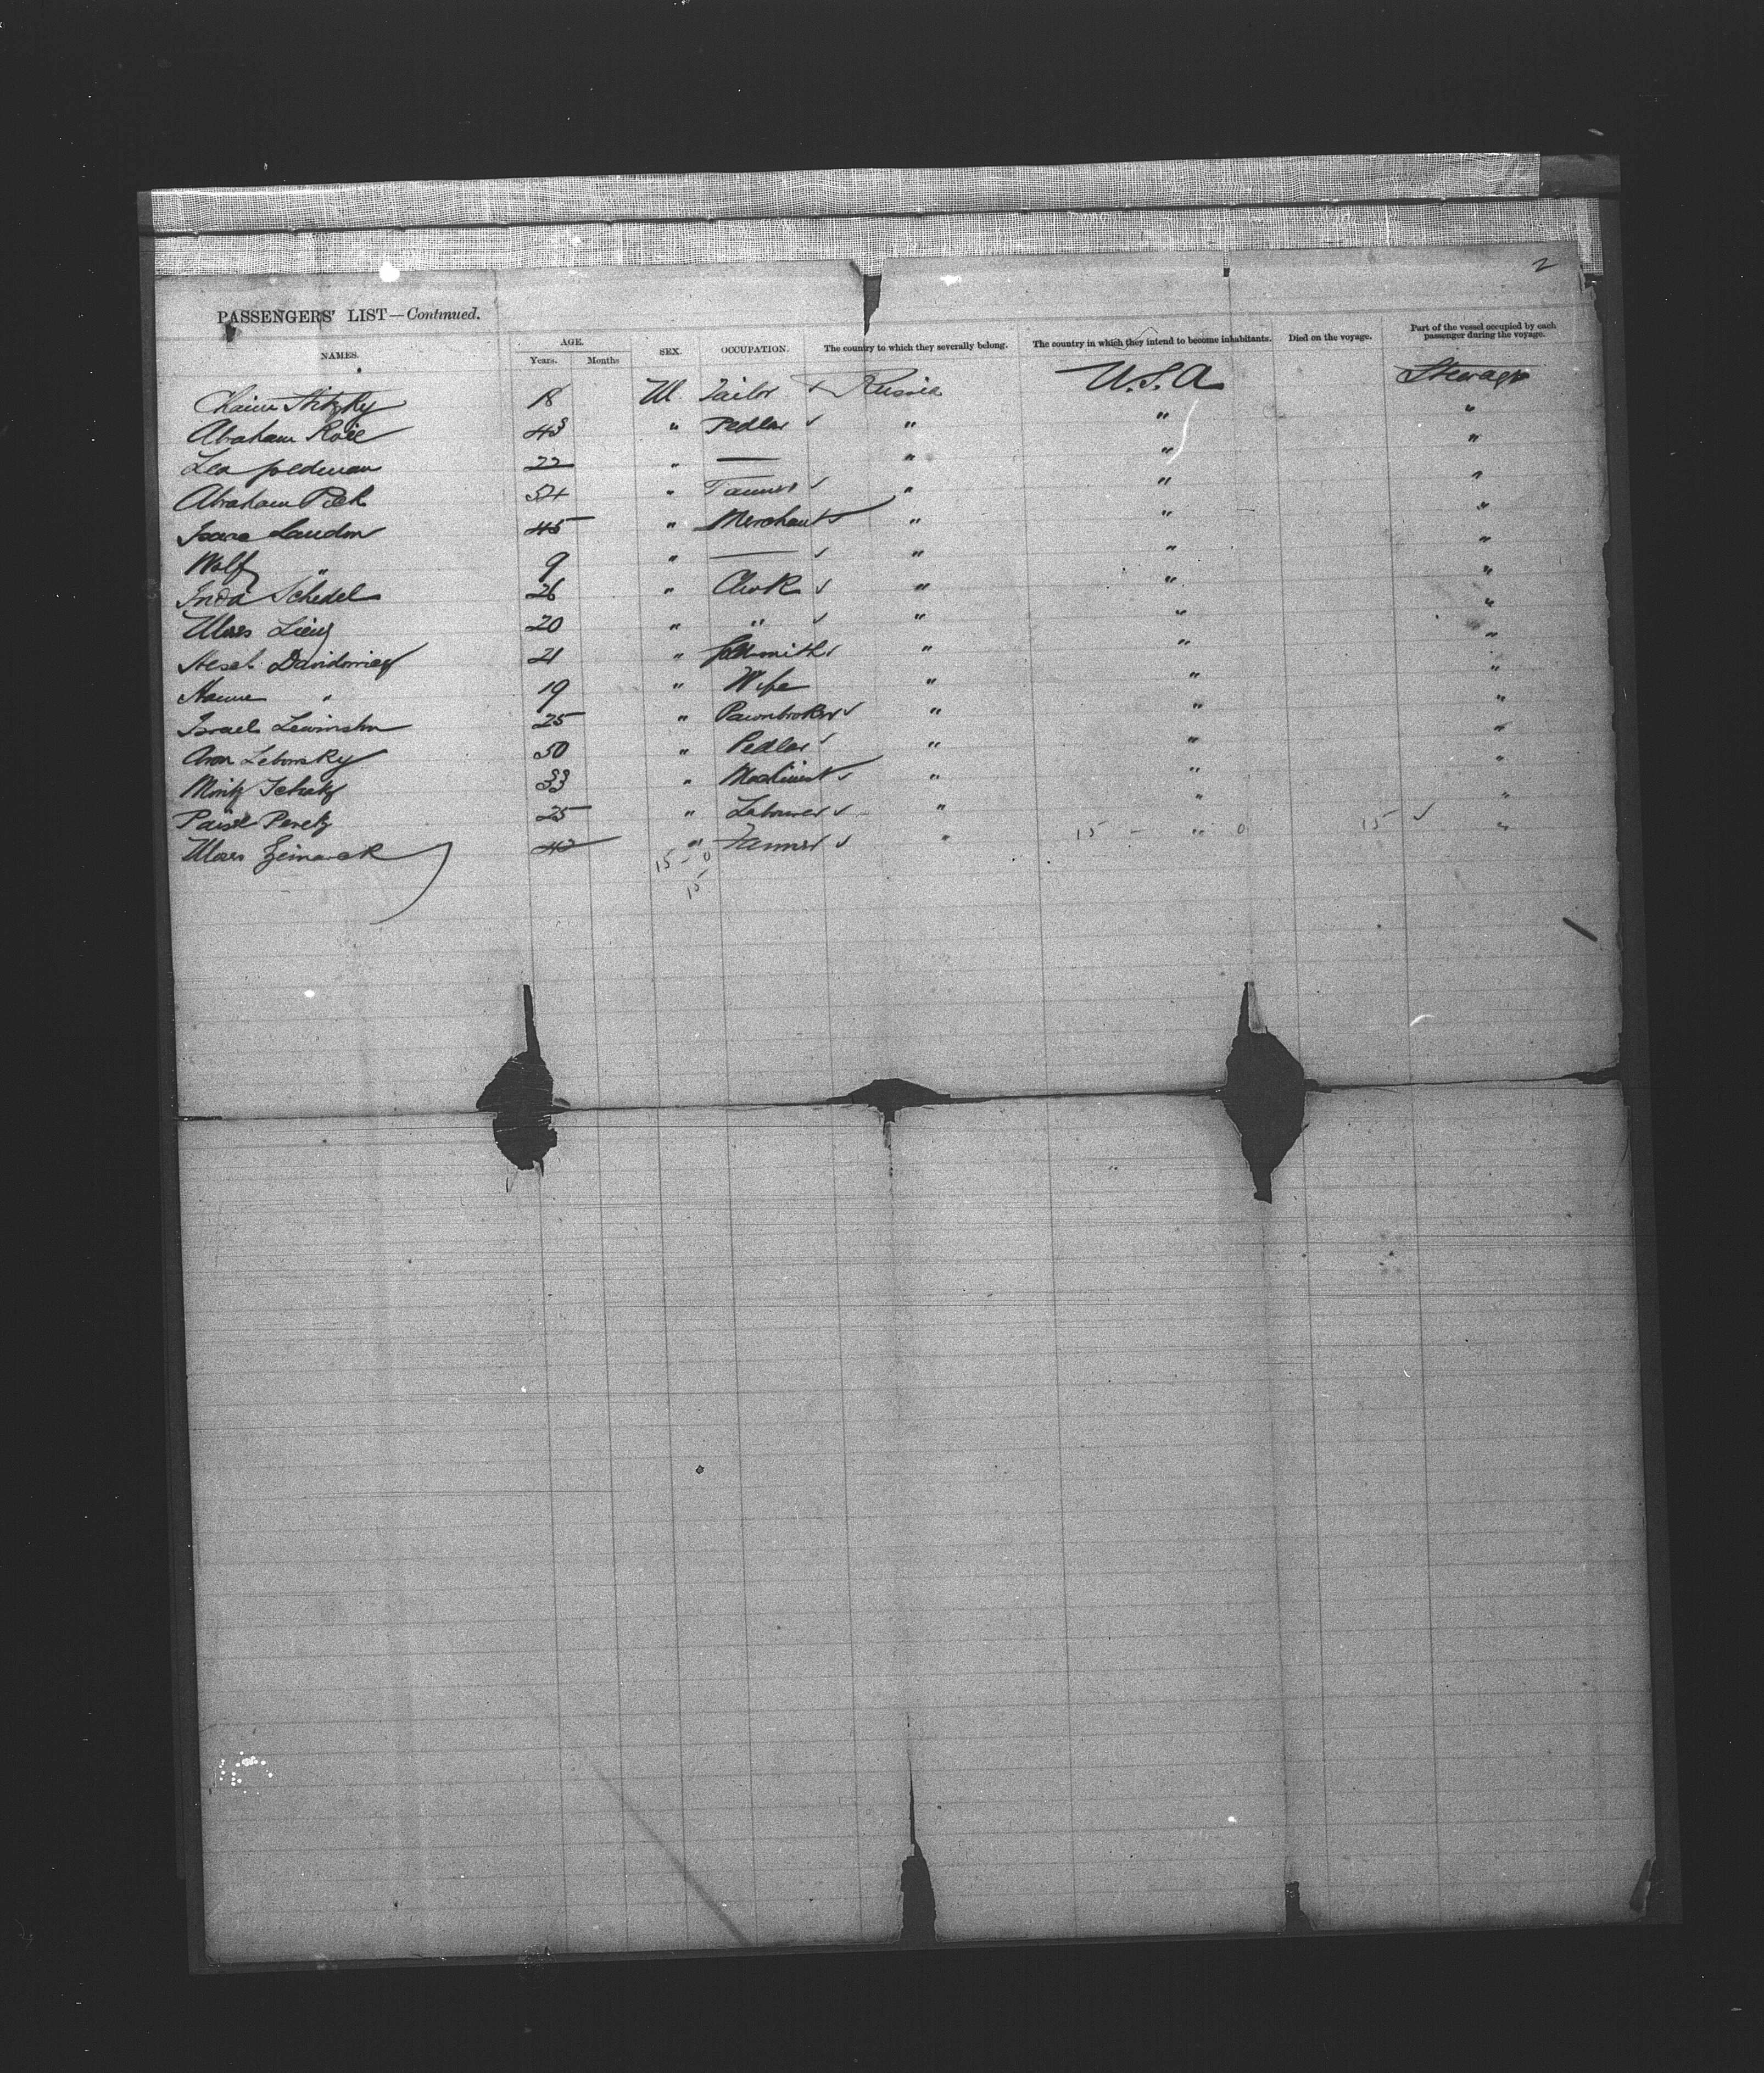 2
PASSENGERS' LIST—Continued.
NAMES. AGE. Years. Months SEX. OCCUPATION. The country to which they severally belong. The country in which they intend to become inhabitants. Died on the voyage. Part of the vessel occupied by each passenger during the voyage.
Chaim 18 M. Tailor Russia U.S.A Steerage
Abraham 43 " Pedlar ✓ " " "
Lea Goldman 22 " — " " "
Abraham Pick 54 " Tanner ✓ " " "
Isaac Landon 45 " Merchant ✓ " " "
Wolf " 9 " — ✓ " " "
Schedel 26 " Clerk ✓ " " "
Moses 20 " " ✓ " " "
21 " Goldsmith ✓ " " "
Hanne " 19 " Wife " " "
Israel Lewinsohn 25 " Pawnbroker ✓ " " "
Aron Lebowsky 50 " Pedlar ✓ " " "
Moritz Schatz 33 " Machinist ✓ " " "
Peretz 25 " Labourer ✓ " " "
Moses 42 " Farmer ✓ " 15 – " 0 15 ✓ "
15 – 0
15